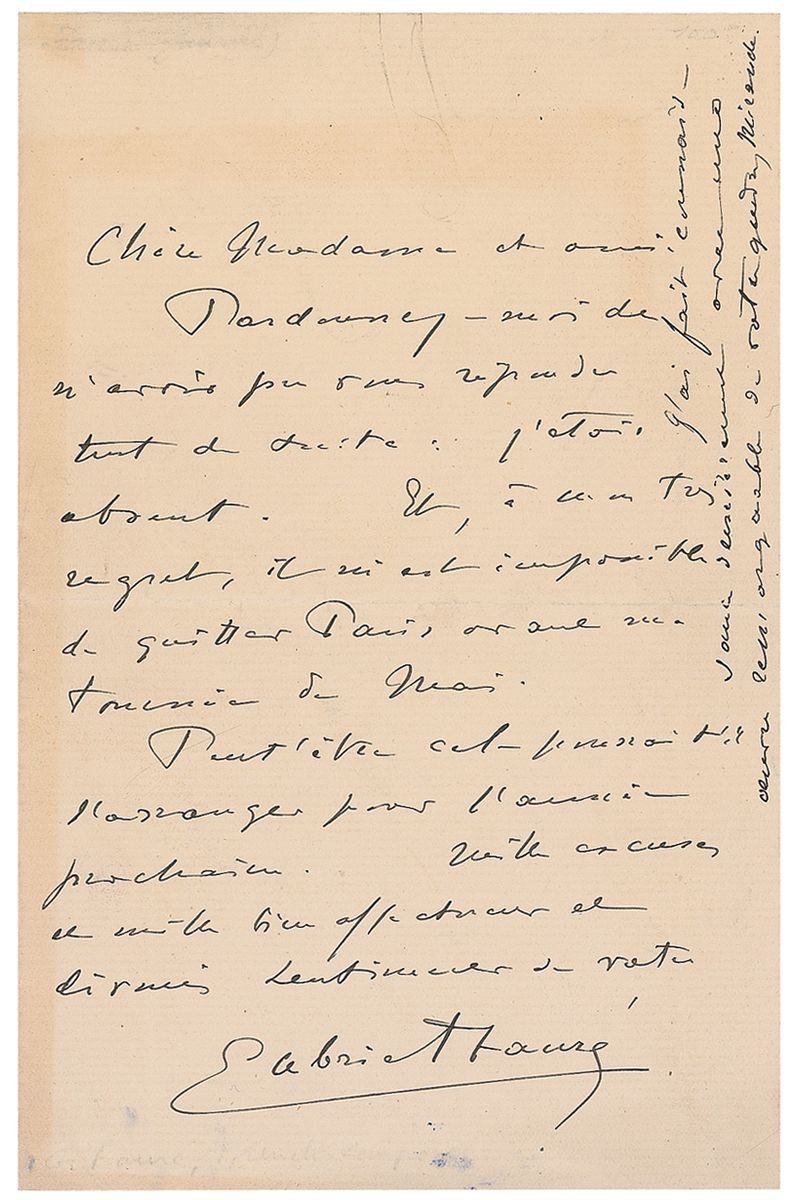 Chère Madame et amie
Pardonnez-moi de
n'avoir pu vous répondre
tout de suite : j'étais
absent. Et, à mon très
regret, il m'est impossible
de quitter Paris avant ma
tournée de Mai.
Peut'être cela pourrait-il
s'arranger pour l'année
prochaine. Mille excuses
et mille bien affectueux et
dévoués sentiments de votre
Gabriel Fauré
J'ai fait connais-
sance dernièrement avec une
œuvre remarquable de votre